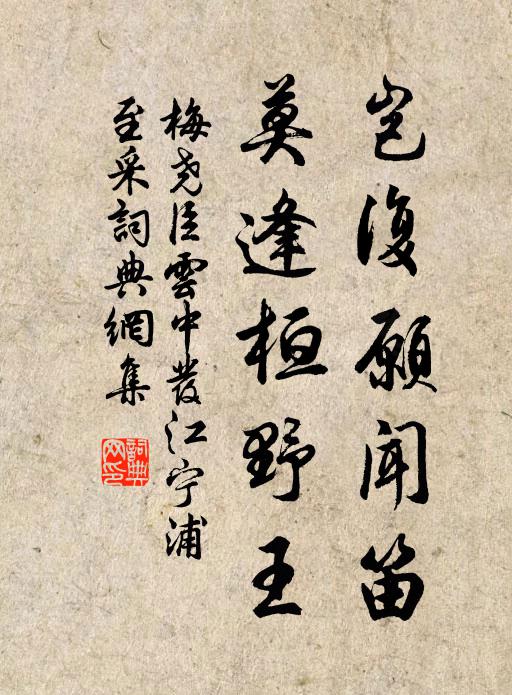 岂復願聞笛
莫逢桓野王
梅尧臣雲中發江宁浦
至采詞典網集
詞典网印